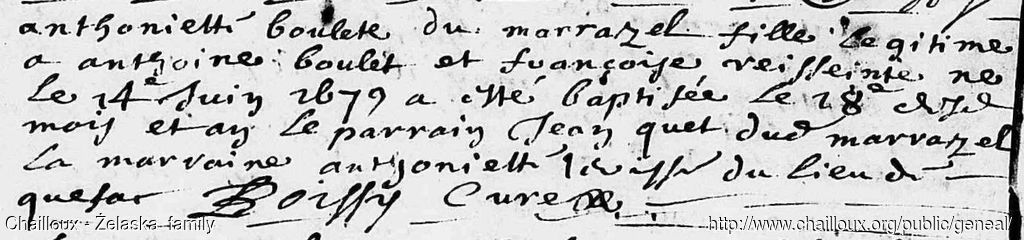 anthoniette boulete du marrazel fille legitime
a anthoine boulet et françoise veisseinte ne
le 14e Juin 1679 a esté baptisée le 18e dud
mois et an le parrain Jean quet dud marrazel
la marraine anthoniette du lieu de
quesac Boissy Cure
Chailloux - Želaska family http://www.chailloux.org/public/geneal/